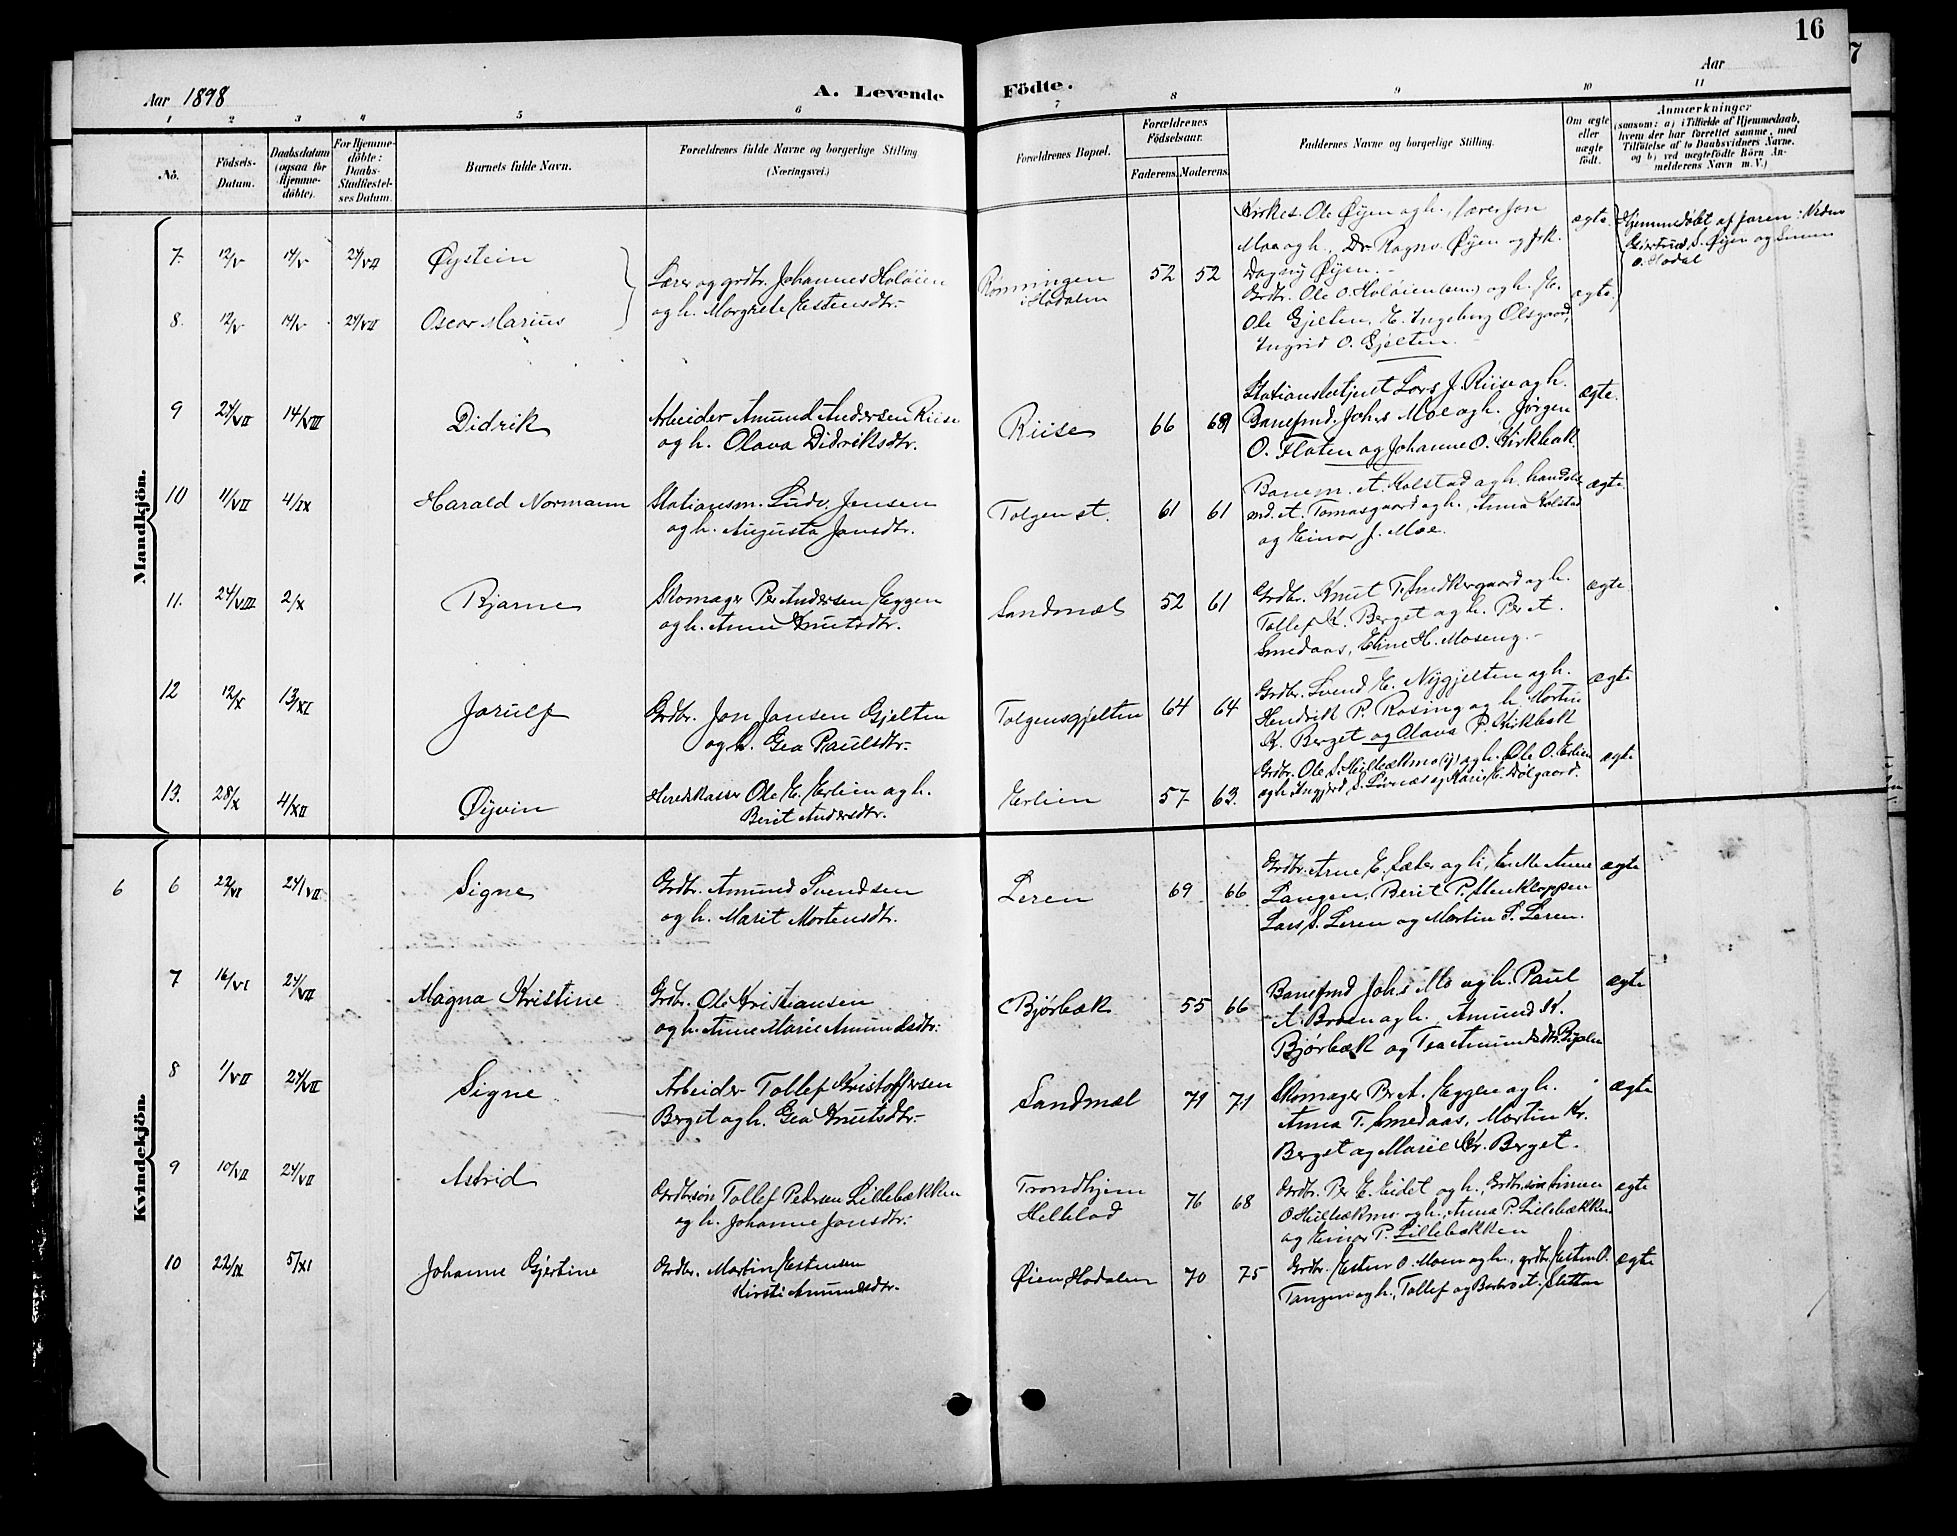 16
Aar 1898
A. Levende Födte.
Aar
1 2 3 4 5 6 7 8 9 10 11
No.
Födsels-Datum.
Daabsdatum (ogsaa for Hjemme-döbte).
For Hjemme-döbte: Daabs-Stadfæstel-ses Datum.
Barnets fulde Navn.
Forældrenes fulde Navne og borgerlige Stilling (Næringsvei.)
Forældrenes Bopæl.
Forældrenes Födselsaar.
Faderens. Moderens.
Faddernes Navne og borgerlige Stilling.
Om ægte eller uægte födt.
Anmærkninger (saasom: a) i Tilfælde af Hjemmedaab, hvem der har forrettet samme, med Tilföielse af to Daabsvidners Navne, og b) ved uægtefödte Börn An-melderens Navn m. V.)
Mandkjön.
7. 12/V 14/V 24/VII Øystein
Lærer og grdbr. Johannes Holøien
og h. Margrete Estensdtr.
Rønningen
i Hodalen
52 52
Kirkes. Ole Øyen og h., lærer Jon
Moa og h., Dr. Ragnv. Øyen og frk.
Dagny Øyen.
ægte
Hjemmedøbt af Jorem.
S. Øyen og Simen
O. Hodal
8. 12/V 14/V 24/VII Oscar Marius
Grdbr. Ole O. Holøien (sen.) og h. E.
Ole Gjelten, E. Ingeborg Olsgaard,
Ingrid O. Gjelten.
ægte
9 24/VII 14/VIII Didrik
Arbeider Amund Andersen Riise
og h. Olava Didriksdtr.
Riise
66 69
Stationsbetjent Lars J. Riise og h.
Banefmd. Johs Moe og h. Jørgen
O. Floten og Johanne O. Kirkbak.
ægte
10 11/VII 4/IX Harald Normann
Stationsm. Ludv. Jensen
og h. Augusta Jansdtr.
Tolgen st.
61 61
Banem. A. Kolstad og h. handels-
md. A. Tomasgaard og h., Anna Kolstad
og Einar J. Moe.
ægte
11. 24/VIII 2/X Bjarne
Skomager Per Andersen Eggen
og h. Anne Knutsdtr.
Sandmæl
52 61
Grdbr. Knut T. Smedkergaard og h.
Tollef K. Berget og h. Per A.
Smedaas, Eline H. Moseng.
ægte
12 12/X 13/XI Jorulf
Grdbr. Jon Jonsen Gjelten
og h. Gea Paulsdtr.
Tolgensgjelten
64 64
Grdbr. Svend E. Nygjelten og h.
Hendrik P. Rosing og h. Martin
K. Berget og Olava P. Kirkbak
ægte
13. 28/X 4/XII Øyvin
Heredskasser Ole E. Erlien og h.
Berit Andersdtr.
Erlien
57 63.
Grdbr. Ole S. Hulbækmo og h. Ole O. Erlien
og h. Ingjerd S. Lövnæs og Marie E. Dølgaard.
ægte
Kvindekjön.
6 6 22/VI 24/VII Signe
Grdbr. Amund Svendsen
og h. Marit Mortensdtr.
Leren
69 66
Grdbr. Arne E. Sæter og h, Enke Anne
Langen, Berit P. Stenkloppen
Lars S. Leren og Martin S. Leren.
ægte
7 16/VI 24/VII Magna Kristine
Grdbr. Ole Kristiansen
og h. Anne Marie Amundsdtr.
Bjørbæk
55 66
Banefmd Johs Mo og h. Paul
A. Broen og h. Amund K.
Bjørbæk og Tea Amundsdtr.
ægte
8 1/VII 24/VII Signe
Arbeider Tollef Kristoffersen
Berget og h. Gea Knutsdtr.
Sandmæl
71 71
Skomager Per A. Eggen og h.
Anna T. Smedaas, Martin Kr.
Berget og Marie Kr. Berget.
ægte
9 10/VII 24/VII Astrid
Grdbrsøn Tollef Pedersen Lillebækken
og h. Johanne Jonsdtr.
Trondhjem
76 68
Grdbr. Per E. Eidet og h., Grdbrsøn Simen
O Hulbækmo og h, Anna P. Lillebækken
og Einar P. Lillebækken
ægte
10 22/IX 5/XI Johanne Gjertine
Grdbr. Martin Estensen
Kirsti Amundsdtr.
Øien Hodalen
70 75
Grdbr. Esten O. Moen og h., grdbr. Esten O.
Tangen og h., Tollef og Barbro A. Sletten
ægte